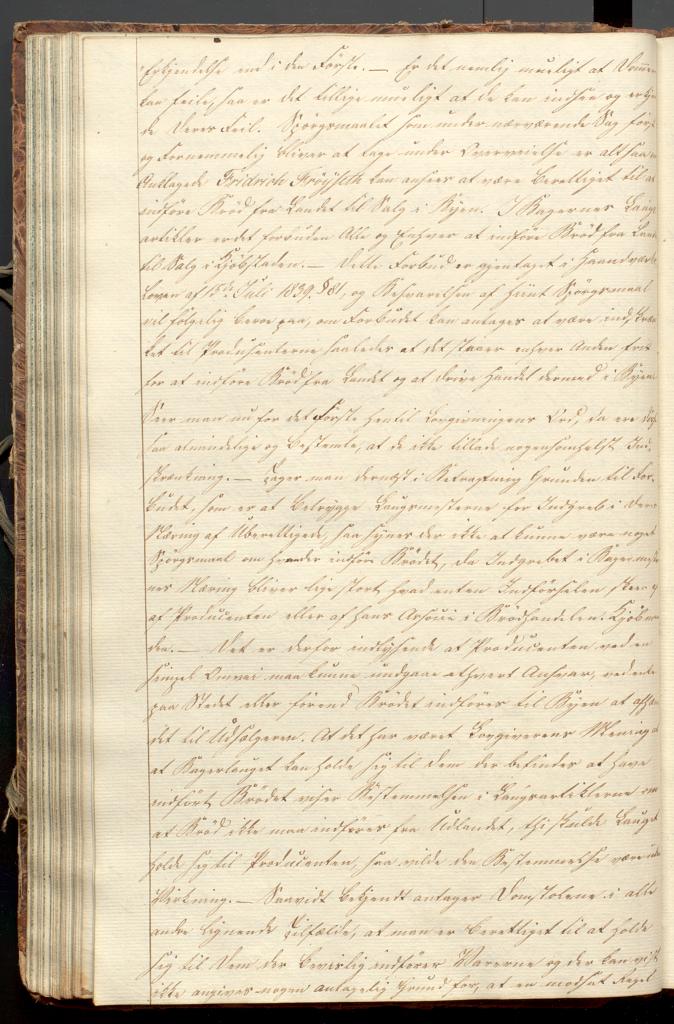 Erkjendelse end i den Første. — Er det nemlig mueligt at Dommere
kan feile, saa er det tillige mueligt at de kan indsee og erkjen
de deres Feil. Spørgsmaalet som under nærværende Sag først
og fornemmelig bliver at tage under Overveielse er altsaa om
Anklagede Fridrich Frøijseth kan ansees at være berettiget til at
indføre Brød fra Landet til Salg i Byen. I Bagernes Laugs
artikler er det forbuden Alle og Enhver at indføre Brød fra Landet
til Salg i Kjøbstaden. — Dette Forbud er gjentaget i Haandværks
Loven af 15de Juli 1839 § 81, og Besvarelsen af hiint Spørgsmaal
vil følgelig beroe paa, om Forbudet kan antages at være indskræn
ket til Producenterne saaledes at det staaer enhver Anden frit
for at indføre Brød fra Landet og at drive Handel dermed i Byen.
Seer man nu for det Første hen til Lovgivningens Ord, da ere disse
saa almindelige og bestemte, at de ikke tillade nogensomhelst Ind
skrænkning. — Tager man dernæst i Betragtning Grunden til For
budet, som er at betrygge Laugsmesterne for Indgreb i deres
Næring af Uberettigede, saa synes der ikke at kunne være noget
Spørgsmaal om hvem der indfører Brødet, da Indgrebet i Bagermester
nes Næring bliver lige stort hvad enten Indførselen skeer
af Producenten eller af hans Associe i Brødhandelen i Kjøbsta
den. — Det er derfor indlysende at Producenten ved en
simpel Omvei maa kunne undgaae ethvert Ansvar, ved enten
paa Stedet eller førend Brødet indføres til Byen at afhæn
det til Udsælgeren. At det har været Lovgiverens Mening
at Bagerlauget kan holde sig til dem der befindes at have
indført Brødet viser Bestemmelsen i Laugsartiklerne om
at Brød ikke maa indføres fra Udlandet, thi skulde Lauget
holde sig til Producenten, saa vilde den Bestemmelse være uden
Virkning. — Saavidt bekjendt antager Domstolene i alle
andre lignende Tilfælde, at man er berettiget til at holde
sig til dem der beviislig indfører Varerne og der kan vist
ikke angives nogen antagelig Grund for, at en modsat Regel